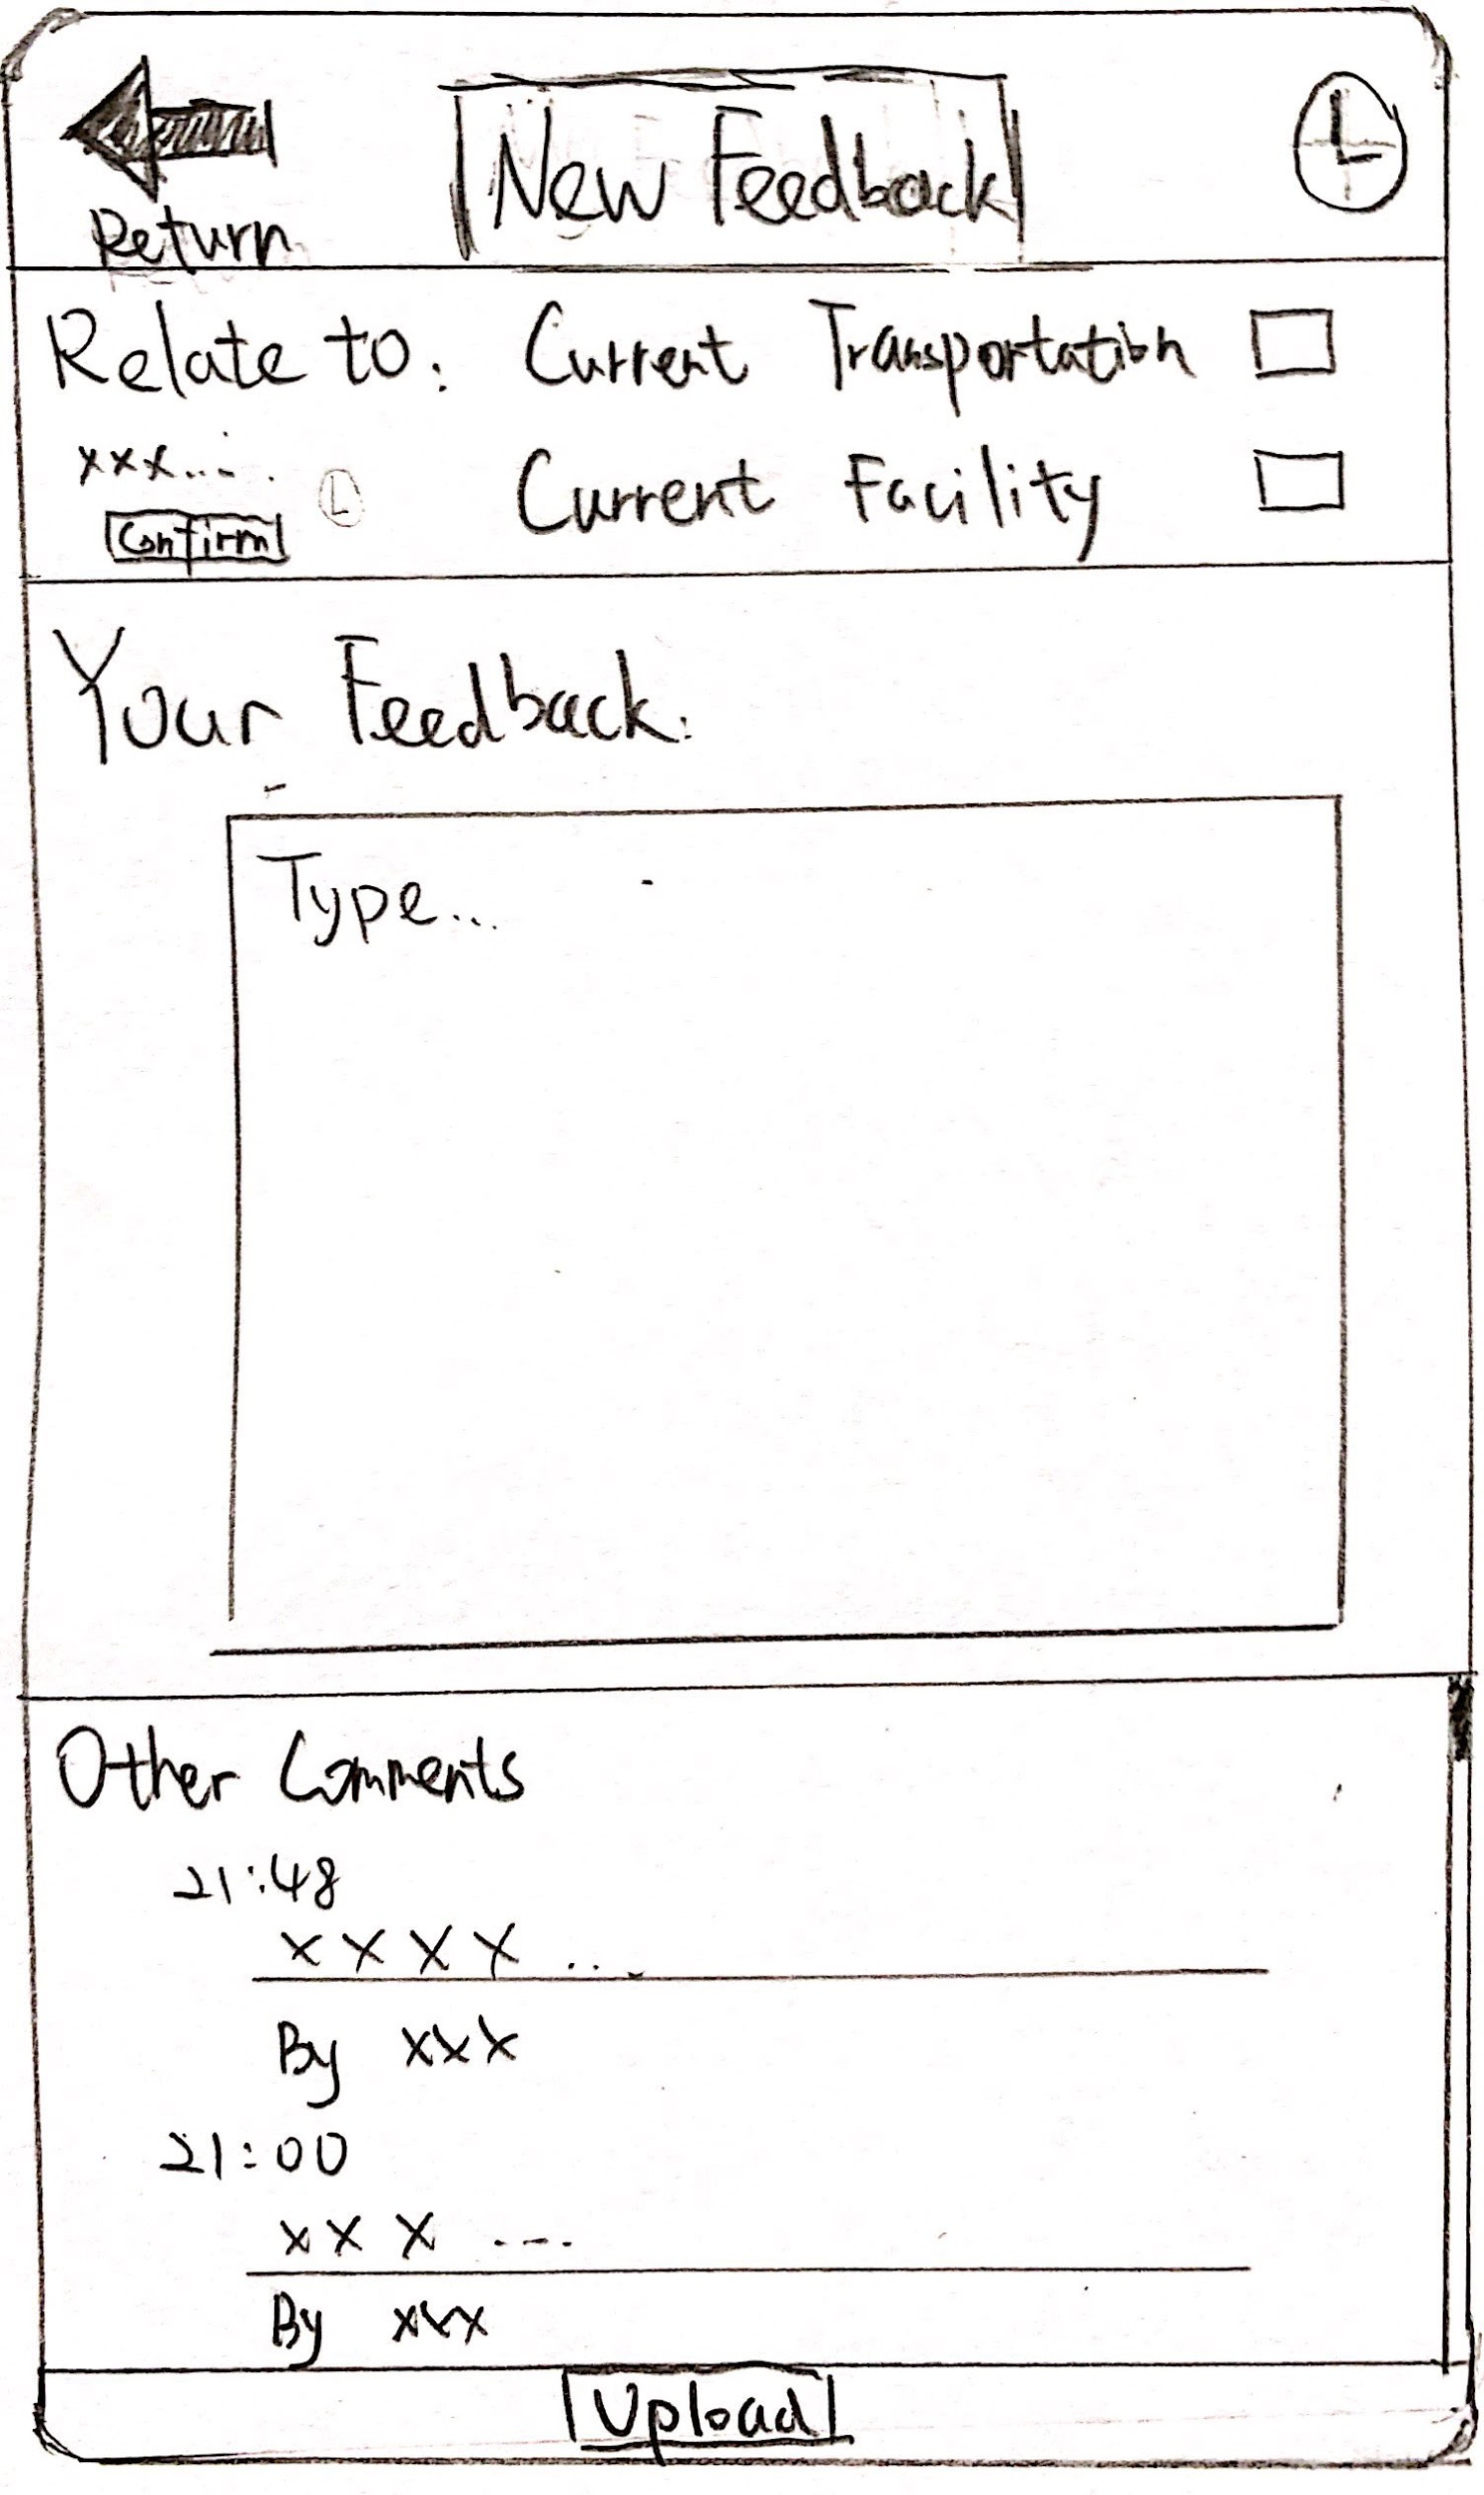 Return
New Feedback
Relate to: Current Transportation
xxx....
Confirm
Current Facility
Your Feedback:
Type...
Other Comments
21:48
xxxx...
By xxx
21:00
xxx ....
By xxx
Upload